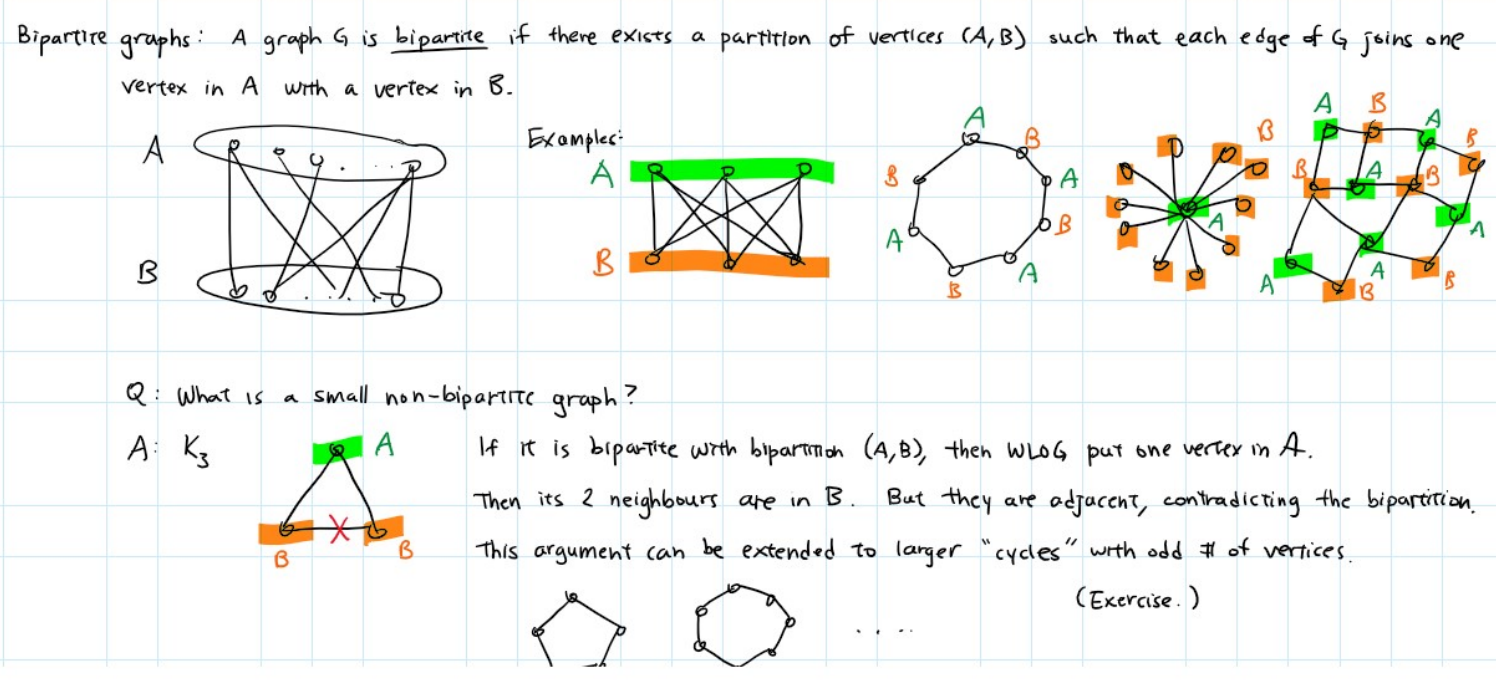 Bipartite graphs: A graph G is bipartite if there exists a partition of vertices (A,B) such that each edge of G joins one
vertex in A with a vertex in B.
A
B
Examples:
A
B
A
B
A
B
A
B
A
B
B
A
A
B
A
B
B
A
B
A
A
B
A
B
Q: What is a small non-bipartite graph?
A: K₃
A
B
B
If it is bipartite with bipartition (A,B), then WLOG put one vertex in A.
Then its 2 neighbours are in B. But they are adjacent, contradicting the bipartition.
This argument can be extended to larger "cycles" with odd # of vertices.
(Exercise.)
.....